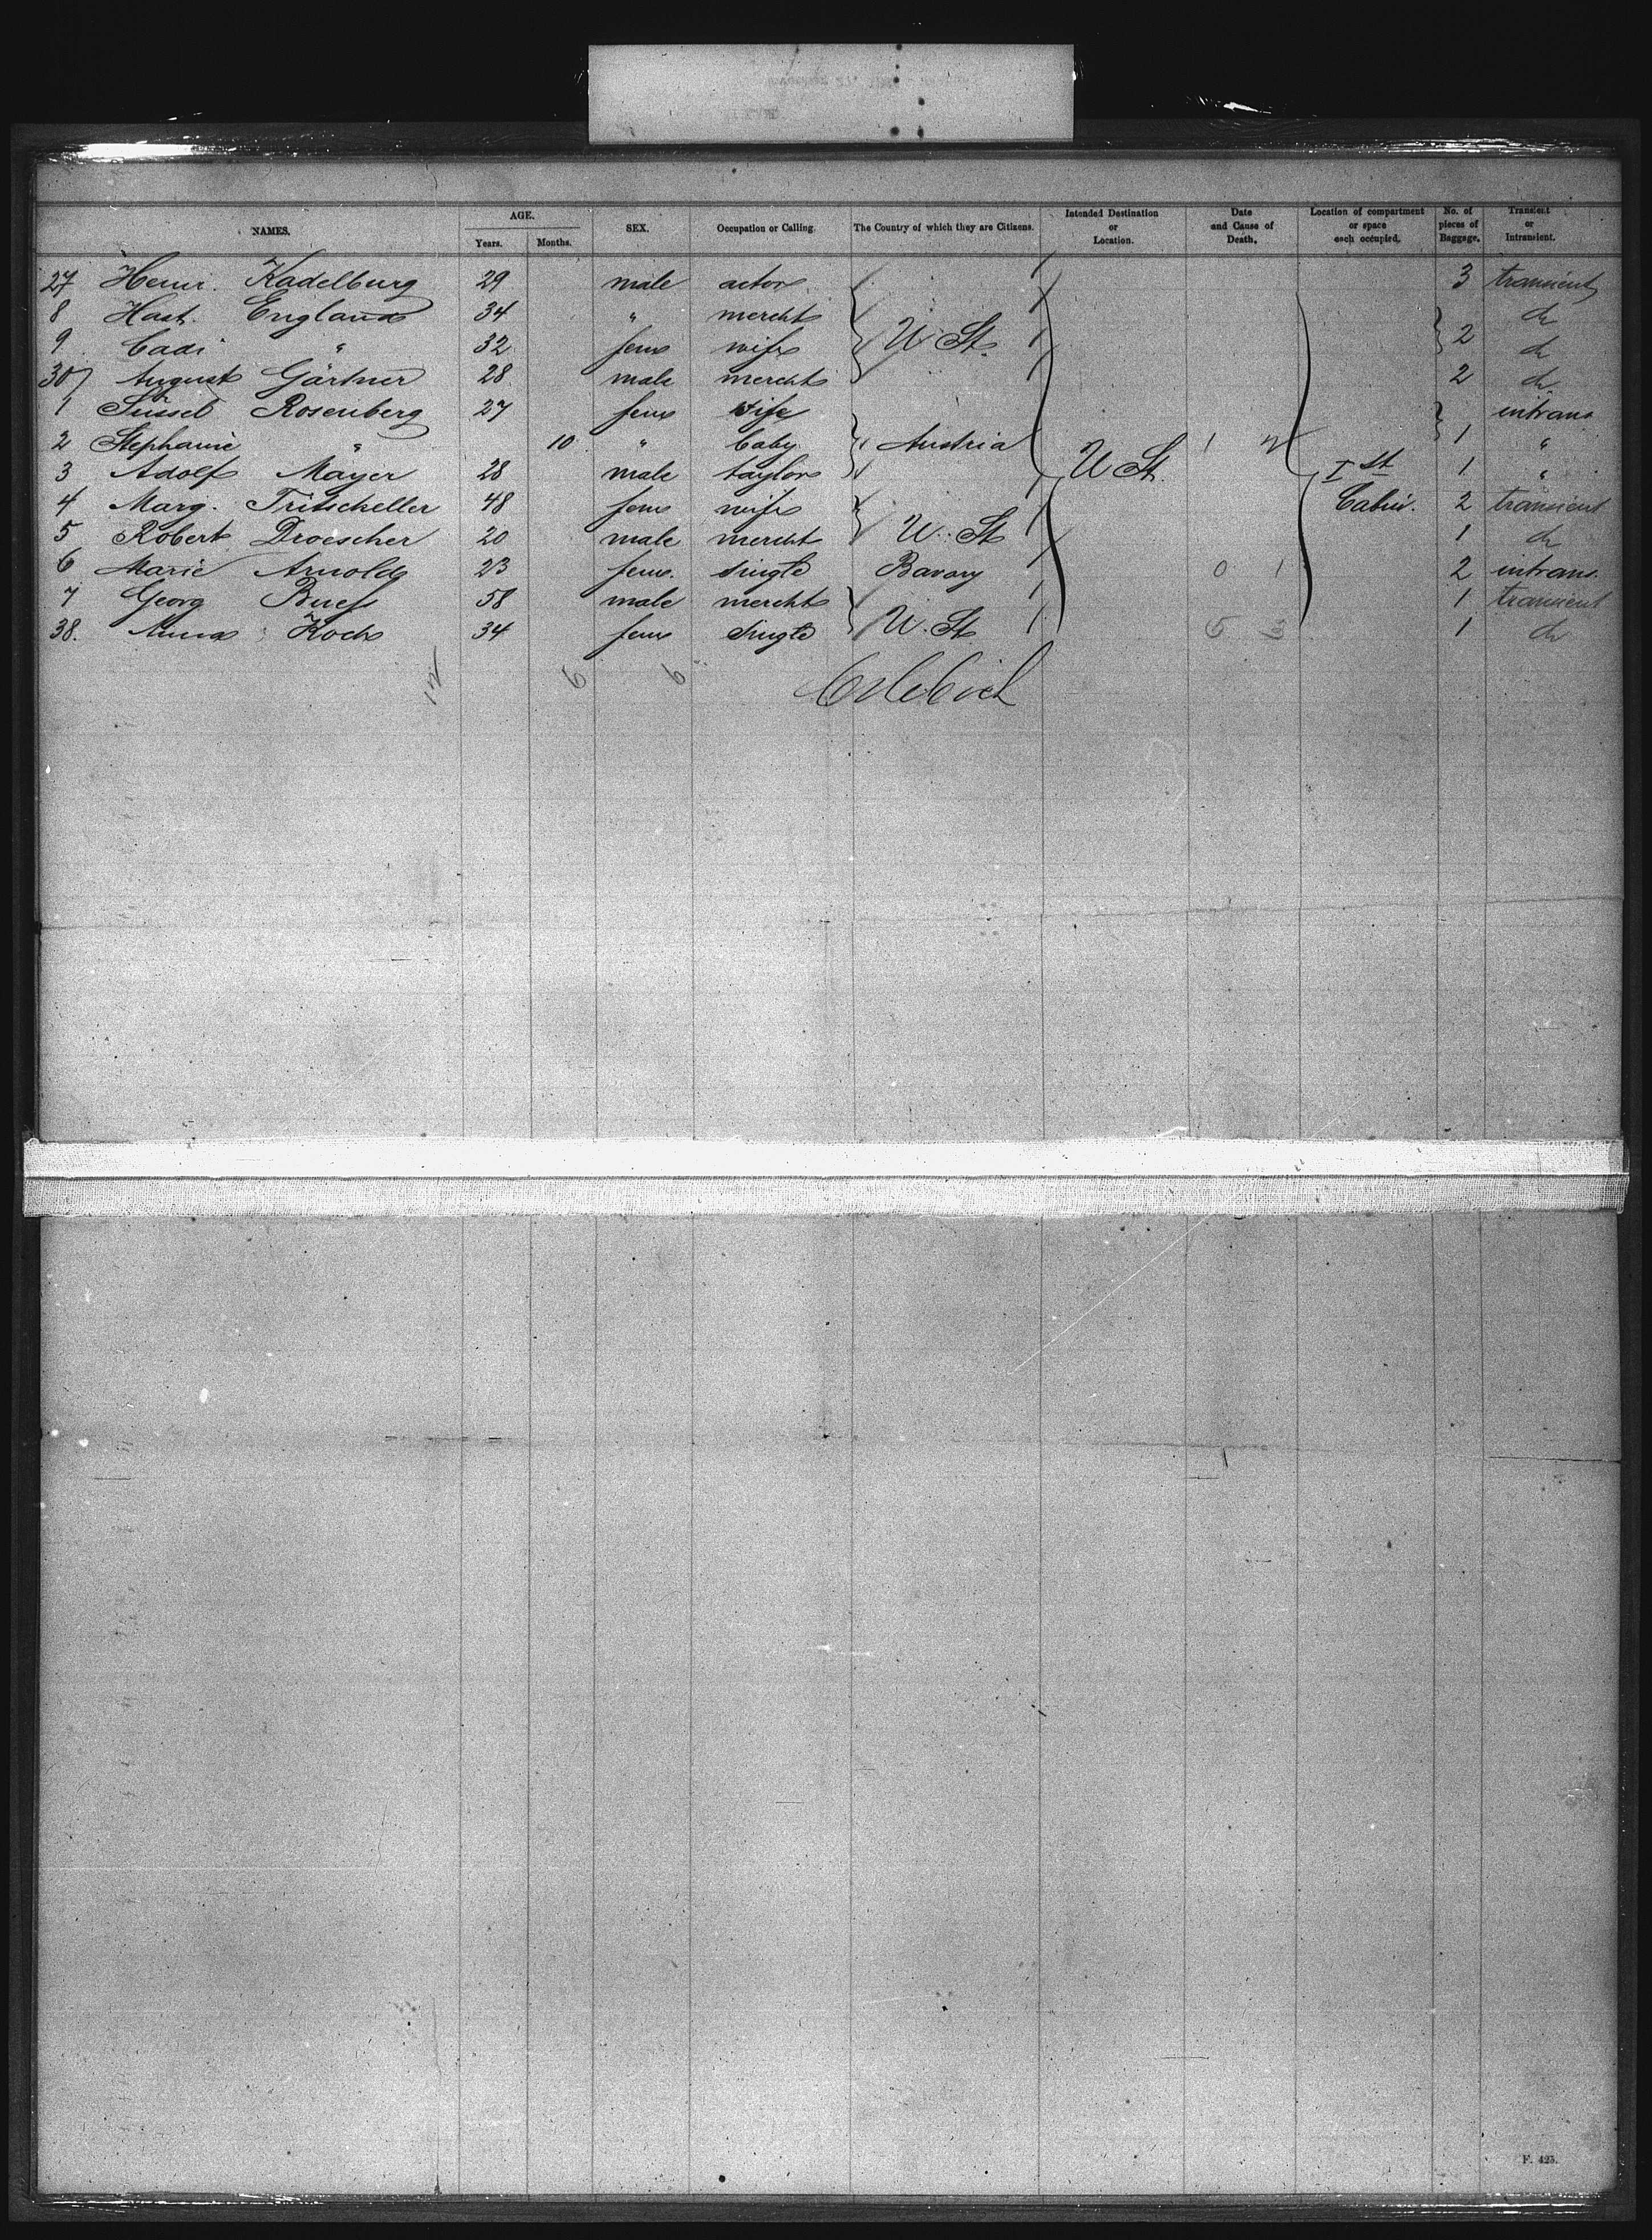 NAMES. AGE. Years. Months. SEX. Occupation or Calling. The Country of which they are Citizens. Intended Destination or Location. Date and Cause of Death. Location of compartment or space each occupied. No. of pieces of Baggage. Transient or Intransient.
27 Henr. Kadelburg 29 male actor 3 transient
8 Hast. England 34 " mercht do
9 Cadi " 32 fem wife U St. 2 do
30 August Gärtner 28 male mercht 2 do
1 Süssel Rosenberg 27 fem wife intrans
2 Stephanie " 10 " baby Austria 1 2 1 "
3 Adolf Mayer 28 male taylor U St. I st 1 "
4 Marg. Tritscheller 48 fem wife Cabin. 2 transient
5 Robert Droescher 20 male mercht U. St 1 do
6 Marie Arnold 23 fem. single Bavary 0 1 2 intrans.
7 Georg Buess 58 male mercht 1 transient
38. Anna Koch 34 fem single U. St 5 3 1 do
12 6 6
F. 425.